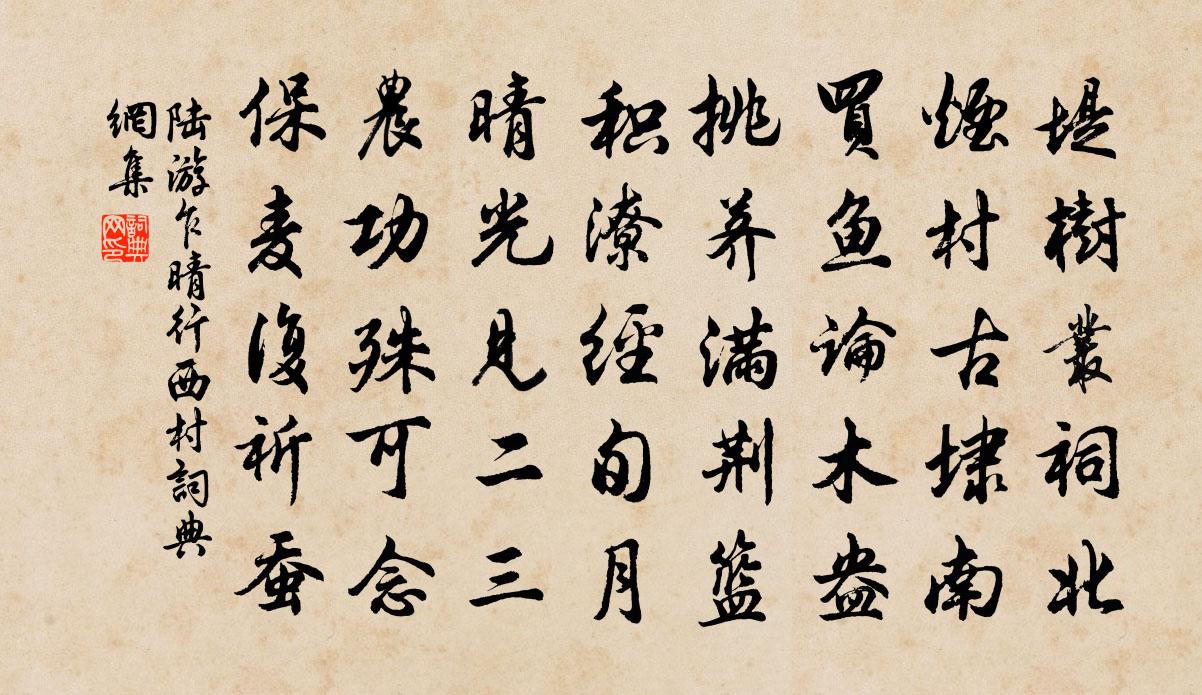 堤樹叢祠北
煙村古埭南
買魚論木盎
挑荠滿荆籃
积潦經旬月
晴光見二三
農功殊可念
保麦復祈蚕
陆游乍晴行西村詞典
網集
詞典
网印